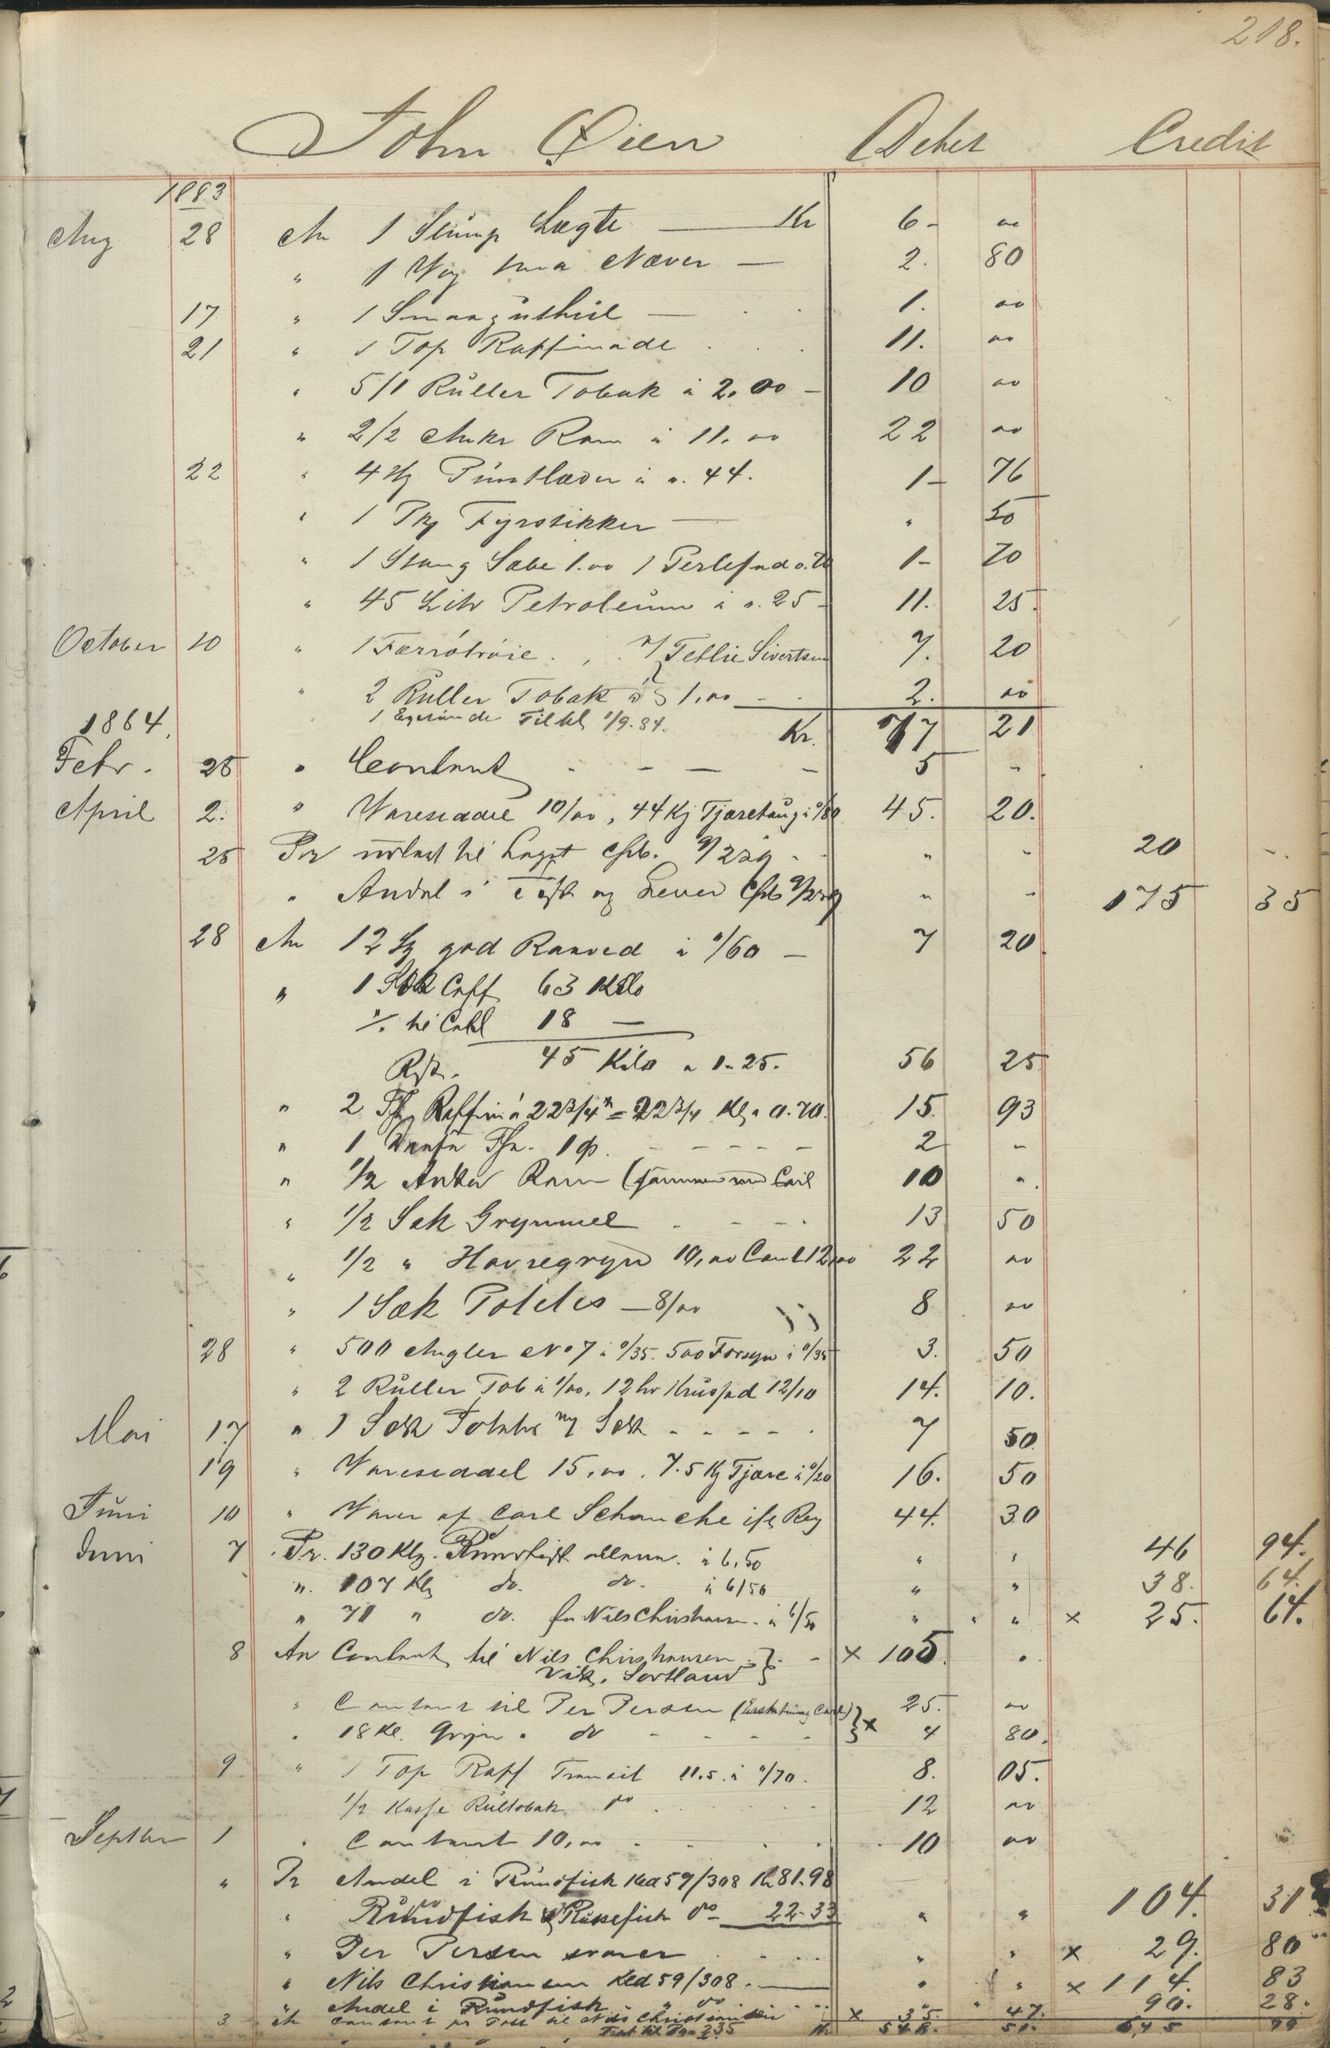 218.
John Øien Debet Credit
1883
Aug 28 An 1 Stump Lægte — Kr 6- 00
" 1 Vog Næver — 2. 80
17 " 1 — 1. 00
21 " 1 Top Raffinade 11. 00
" 5/1 Ruller Tobak à 2.00 - 10 00
" 2/2 Ankr Rom à 11.00 22 00
22 " 4 Kg à 0.44. 1- 76
" 1 Pk Fyrstikker — " 50
" 1 Stang Sæbe 1.00 1 0.70 1- 70
" 45 Litr Petroleum à 0.25 - 11. 25.
October 10 " 1 Færrótróie . , . Sivertsen 7. 20
" 2 Ruller Tobak à 1,00 - 2. 00
1 1/9.84.
1884. Kr. 77 21
Febr. 25 " Contant - - — - 5 -
April 2. " Vareseddel 10/00, 44 Kg Tjæretaug 45. 20.
25 Pr til " - 20 -
" Andel i og Lever " - 175 35
28 An 12 Ranved à 0/60 - 7 20.
" 1 Sæk Caff 63 Kilo
til Carl 18 —
Rst. 45 Kilo a 1-25. 56 25
" 2 Raffin à 22 3/4 = 22 3/4 Klg a 0.70. 15. 93
" 1 2 -
" 1/2 Anker Rom (sammen med Carl 10 ".
" 1/2 Sæk Grynmel - - - 13 50
" 1/2 " Havregryn 10,00 Cont 12,00 22 00
" 1 Sæk Potetes — 8/00 8 00
28 " 500 Angler No 7 à 0/35. 500 Forsyn à 0/35 3. 50
" 2 Ruller Tob à 1/00, 12/10 14. 10.
Mai 17 " 1 Sæk m/ Sæk - - - - 7 50.
19 " Vareseddel 15,00. 7.5 Kg Tjære à 0/20 16. 50
Juni 10 " Varer af Carl Schanche Reg 44. 30
Juni 7 Pr. 130 Klg. Rundfisk à 6,50 " " 46 94.
" 107 Klg do. do. à 6/50 " " 38. 64.
" 71 " do. for Nils Christiansen - à 6/50 " " x 25. 64.
8 An Contant til Nils Christiansen - x 105. "
Vik, Sortland
" Contant til Per Persen Carl) 25. 00
" 18 Kl. Gryn " do - - - x 4 80.
9 " 1 Top Raff Transit 11.5. à 0/70. 8. 05.
1/2 Kasse Rultobak do 12 00
Septbr 1 " Contant 10,00 10 00
" Pr Andel i Rundfisk 59/308 Kr 81.98
" Rundfisk 22-33 " " 104. 31
" Per Persen " " x 29. 80
" Nils Christiansen 59/308. — " " x 114. 83
" Andel i Rundfisk " do 90. 28.
3 An Contant Nils Christiansen x 35. 47.
235 Kr. 548. 51. 645